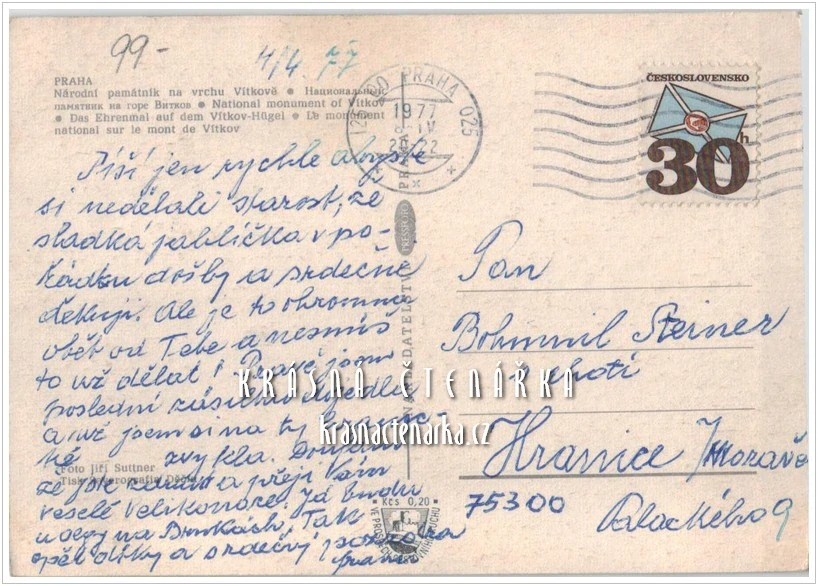 99-
4/4. 77
PRAHA
Národní památník na vrchu Vítkově ● Национальный
памятник на горе Витков ● National monument of Vítkov
● Das Ehrenmal auf dem Vítkov-Hügel ● Le monument
national sur le mont de Vítkov
PRAHA 025
1977
ČESKOSLOVENSKO
30h
Píši jen rychle abyste
si nedělali starost, že
sladká jablíčka v po-
řádku došly a srdečně
děkuji. Ale je to ohromná
oběť od Tebe a nesmíš
to už dělat! Právě jsem
poslední
a už jsem si na ty
zvykla. Doufám
že jste a přeji Vám
veselé Velikonoce. Já budu
na Tak
opět díky a srdečný
Pan
Bohumil Steiner
chotí
Hranice /Morava
75300
Palackého 9
PRESSFOTO
Foto Jiří Suttner
Kčs 0,20
KRÁSNÁ ČTENÁŘKA
krasnactenarka.cz